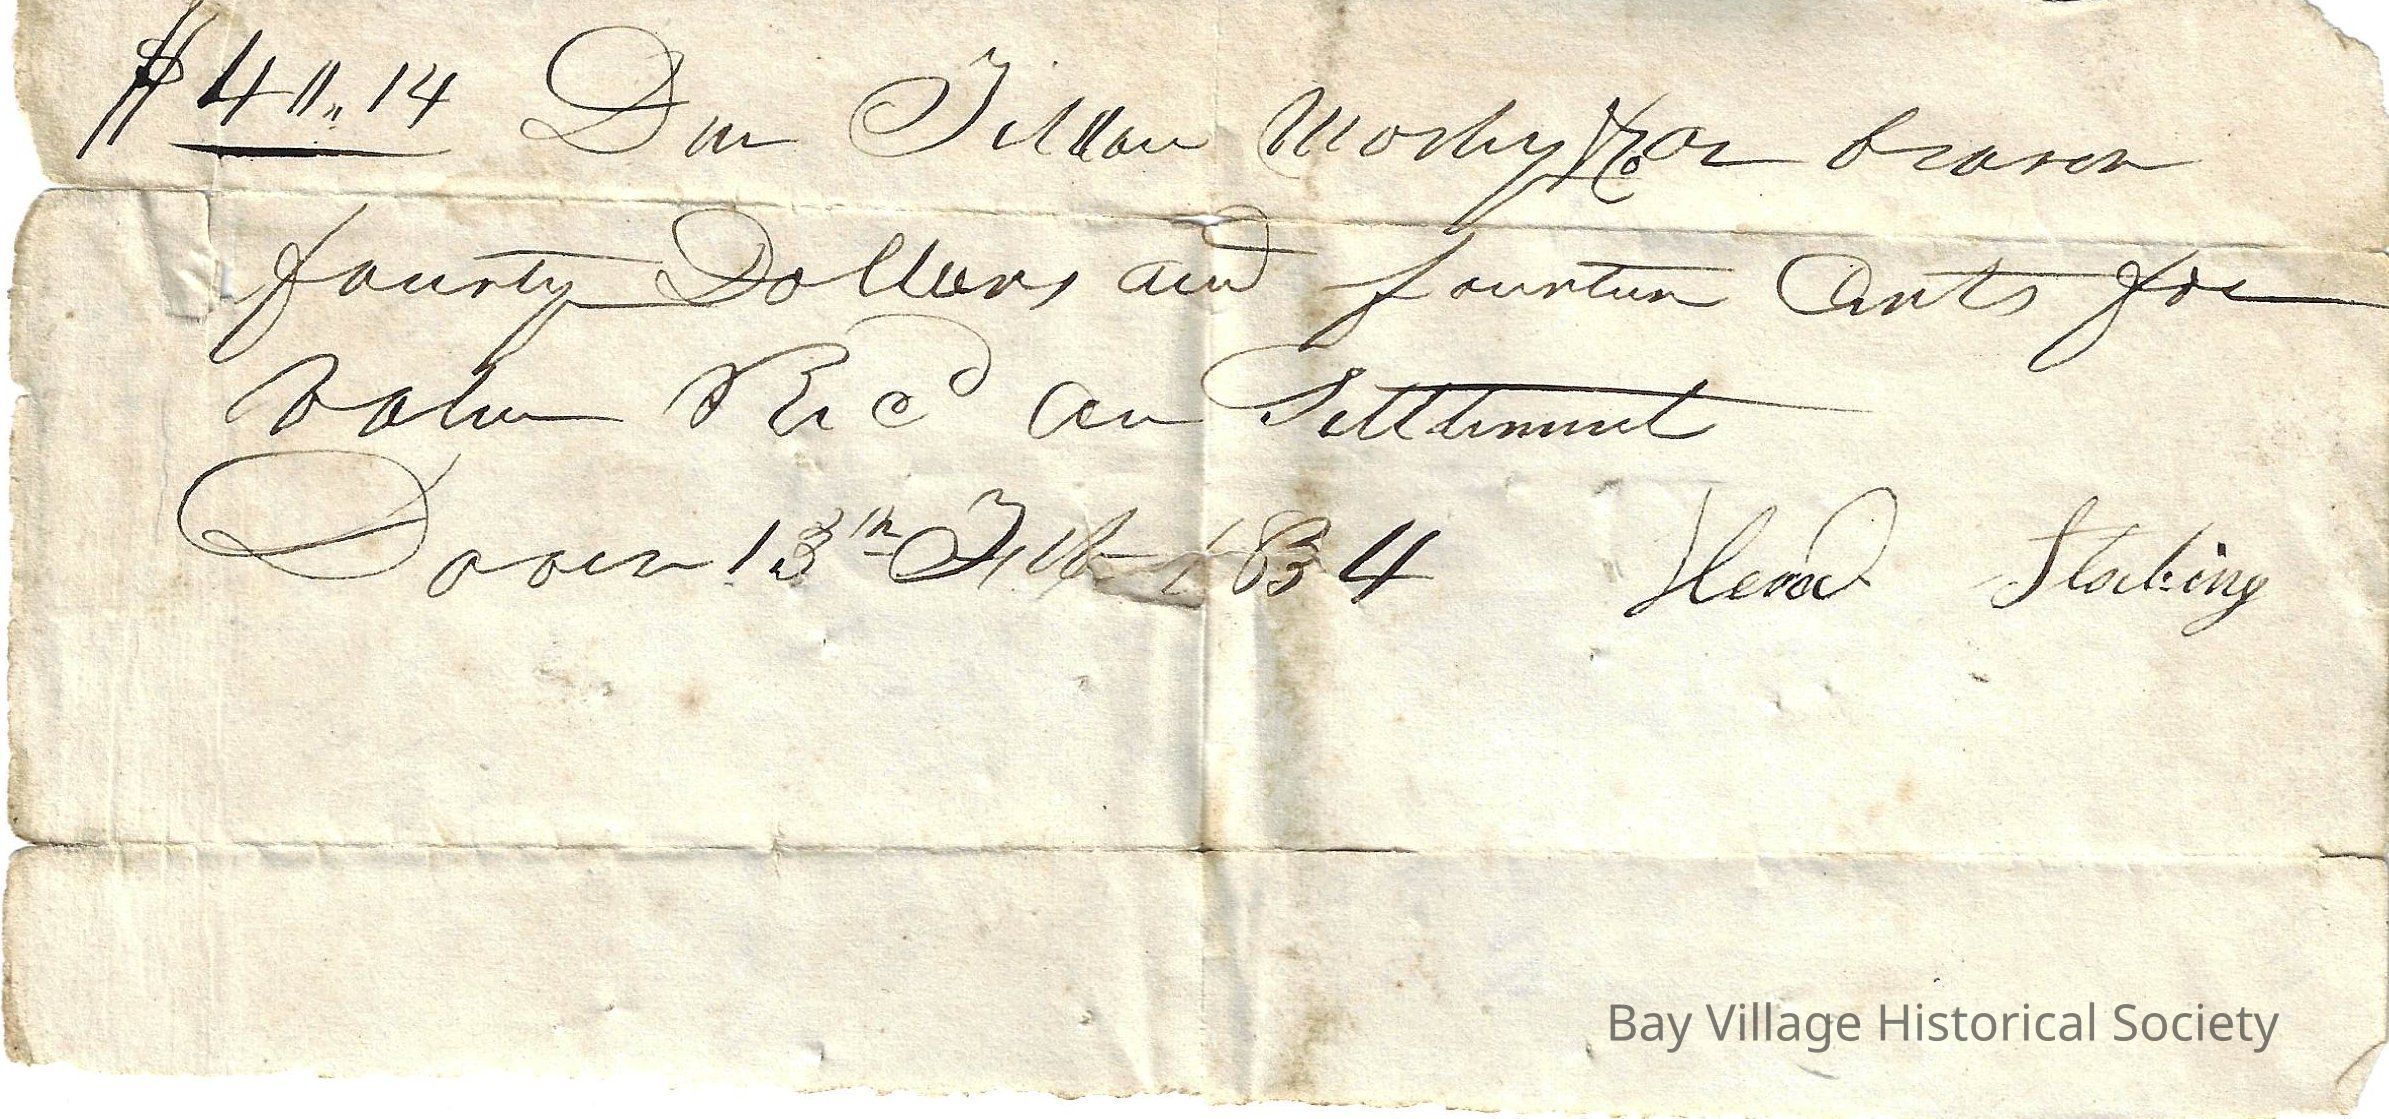 $40,,14 Due Tillson Mosley & Co or bearer
fourty Dollars and fourteen Cents for
Value Recd on Settlement
Dover 13th Feb 1834 Hend Stocking
Bay Village Historical Society